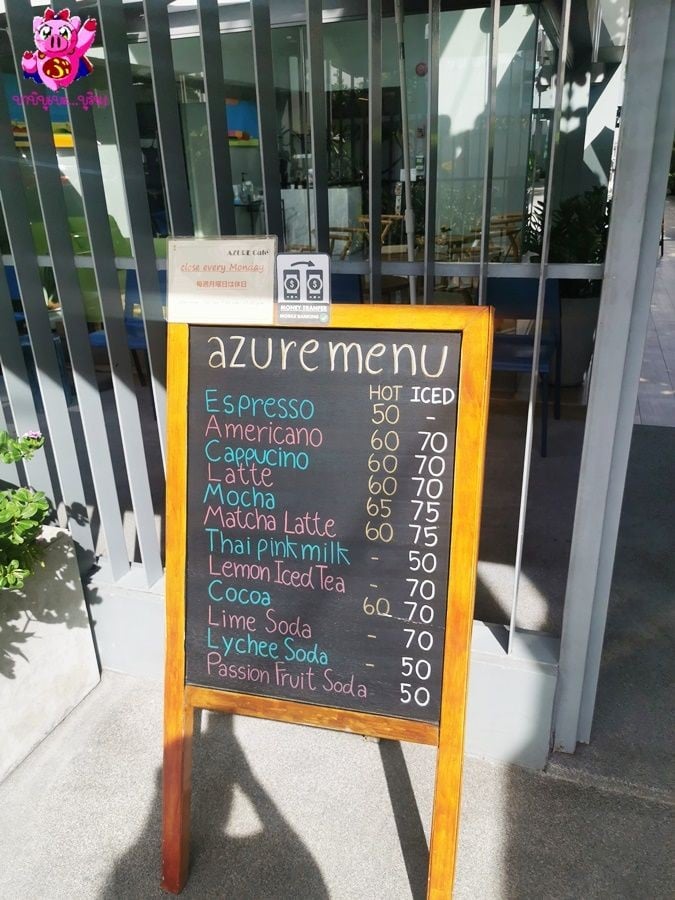 AZURE Café
close every Monday
毎週月曜日は休日
MONEY TRANFER
MOBILE BANKING
azure menu
HOT ICED
Espresso 50 -
Americano 60 70
Cappucino 60 70
Latte 60 70
Mocha 65 75
Matcha Latte 60 75
Thai pink milk - 50
Lemon Iced Tea - 70
Cocoa 60 70
Lime Soda - 70
Lychee Soda - 50
Passion Fruit Soda 50